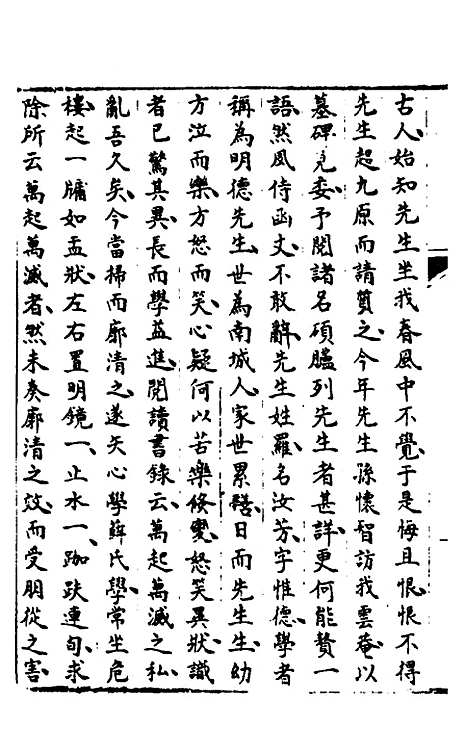 古人始知先生坐我春風中不覺于是悔且恨恨不得
先生起九原而請質之今年先生孫懷智訪我雲菴以
墓碑見委予閱諸名碩臚列先生者甚詳更何能贅一
語然夙侍函丈不敢辭先生姓羅名汝芳字惟德學者
稱為明德先生世為南城人家世累繇日而先生生幼
方泣而樂方怒而笑心疑何以苦樂倏變怒笑異狀識
者已驚其異長而學益進閱讀書錄云萬起萬滅之私
亂吾久矣今當掃而廓清之遂矢心學薛氏學常坐危
樓起一牖如盂狀左右置明鏡一止水一跏趺連旬求
除所云萬起萬滅者然未奏廓清之效而受朋從之害